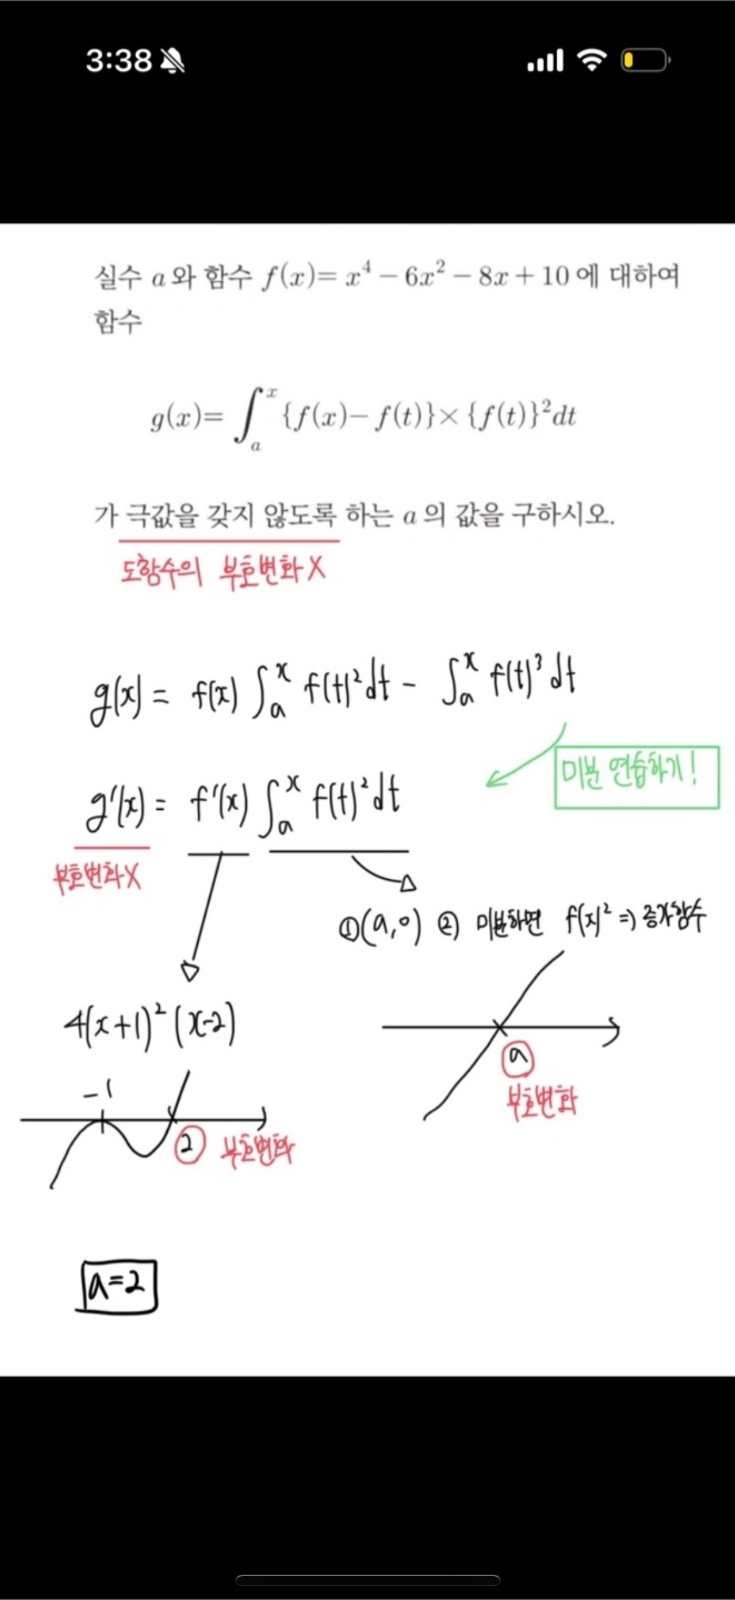 3:38
실수 a와 함수 f(x)= x⁴ − 6x² − 8x + 10에 대하여
함수
g(x)= ∫ₐˣ {f(x)− f(t)}× {f(t)}²dt
가 극값을 갖지 않도록 하는 a의 값을 구하시오.
도함수의 부호변화 X
g(x) = f(x) ∫ₐˣ f(t)² dt − ∫ₐˣ f(t)³ dt
미분 연습하기!
g'(x) = f'(x) ∫ₐˣ f(t)² dt
부호변화 X
① (a, 0) ② 미분하면 f(x)² => 증가함수
4(x+1)² (x-2)
a
부호변화
-1
2 부호변화
a=2